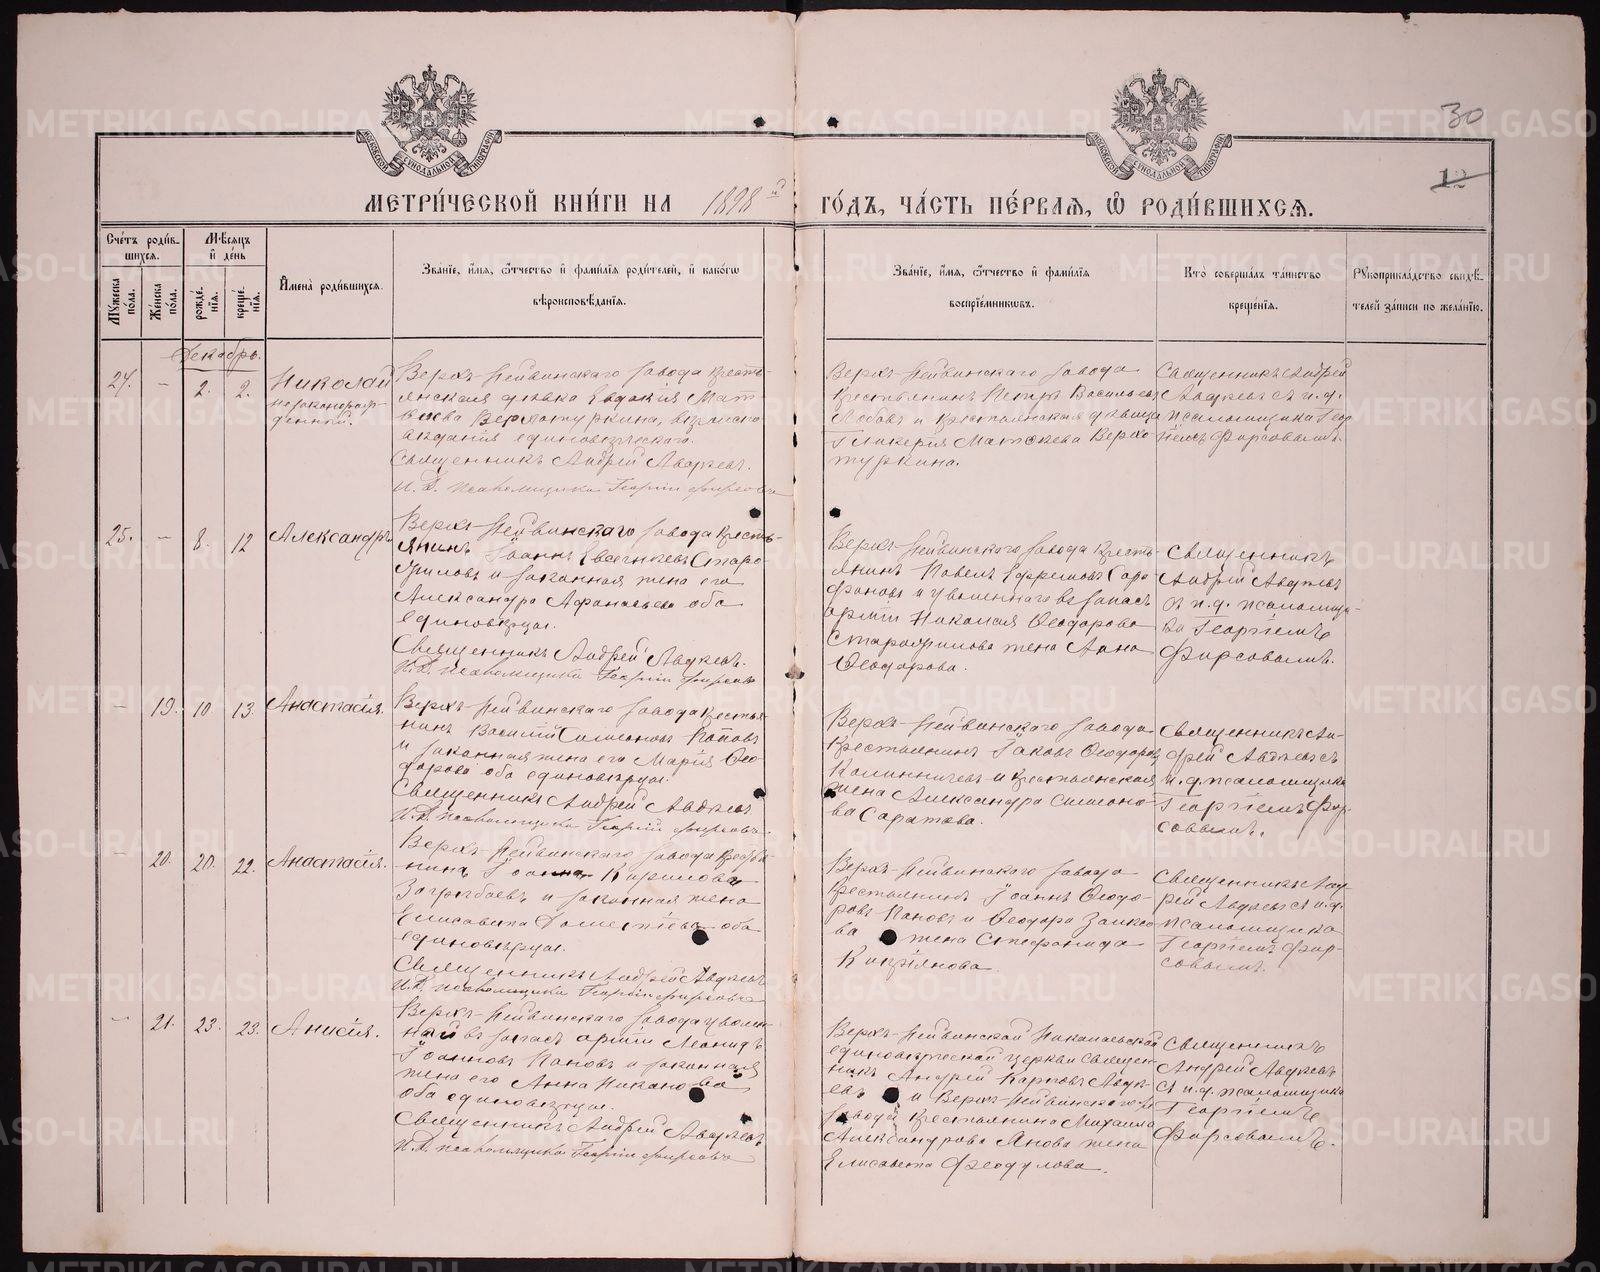 30
12
МЕТРИ́ЧЕСКОЙ КНИ́ГИ НА 1898 й
ГО́ДЪ, ЧА́СТЬ ПЕ́РВАЯ, Ѡ РОДИ́ВШИХСЯ.
Сче́тъ роди́в-
шихся.
Мꙋ́жеска по́ла.
Же́нска по́ла.
Мѣ́сяцъ
и҆ де́нь
рожде́нїя.
креще́нїя.
И҆мена̀ роди́вшихся.
Зва́нїе, и҆́мя, ѻ҆́тчество и҆ фами́лїя роди́телей, и҆ како́гѡ
вѣроисповѣ́данїя.
Зва́нїе, и҆́мя, ѻ҆́тчество и҆ фами́лїя
воспрїе́мниковъ.
Кто̀ соверша́лъ та́инство
креще́нїя.
Рꙋкоприкла́дство свидѣ́-
телей за́писи по жела́нїю.
Декабрь.
24. - 2. 2.
Николай
незаконорож-
денный.
Верхъ-Нейвинскаго завода кресть-
янская дѣвка Евдокія Мат-
ѳѣева Верхотуркина,
единовѣрческаго.
Священникъ Андрей Авдѣевъ.
И.д. псаломщика Георгій Фирсовъ
Верхъ-Нейвинскаго завода
крестьянинъ Петръ Васильевъ
и крестьянская дѣвица
Гликерія Матѳѣева Верхо-
туркина.
Священникъ Андрей
Авдѣевъ съ и.д.
псаломщика Геор-
гіемъ Фирсовымъ.
25. - 8. 12
Александръ
Верхъ-Нейвинскаго завода кресть-
янинъ Іоаннъ Евгеніевъ Старо-
и законная жена его
Александра Афанасьева оба
единовѣрцы.
Священникъ Андрей Авдѣевъ.
И.д. псаломщика Георгій Фирсовъ
Верхъ-Нейвинскаго завода кресть-
янинъ Павелъ Ефремовъ Сара-
фановъ и уволеннаго въ запасъ
арміи Николая Ѳеодорова
жена Анна
Ѳеодорова.
Священникъ
Андрей Авдѣевъ
съ и.д. псаломщи-
ка Георгіемъ
Фирсовымъ.
- 19. 10 13.
Анастасія.
Верхъ-Нейвинскаго завода крестья-
нинъ Василій Симеоновъ Поповъ
и законная жена его Марія Ѳео-
дорова оба единовѣрцы.
Священникъ Андрей Авдѣевъ
И.д. псаломщика Георгій Фирсовъ.
Верхъ-Нейвинскаго завода
крестьянинъ Іаковъ Ѳеодоровъ
Калинничевъ и крестьянская
жена Александра Симеоно-
ва Саратова.
Священникъ Ан-
дрей Авдѣевъ съ
и.д. псаломщика
Георгіемъ Фир-
совымъ.
- 20. 20. 22.
Анастасія.
Верхъ-Нейвинскаго завода крестья-
нинъ Іоаннъ Кириловъ
и законная жена
Елисавета оба
единовѣрцы.
Священникъ Андрей Авдѣевъ
И.д. псаломщика Георгій Фирсовъ
Верхъ-Нейвинскаго завода
крестьянинъ Іоаннъ Ѳеодо-
ровъ Пановъ и Ѳеодора Заико-
ва жена Стефанида
Кипріянова.
Священникъ Анд-
рей Авдѣевъ съ и.д.
псаломщика
Георгіемъ Фир-
совымъ.
- 21. 23. 23.
Анисія.
Верхъ-Нейвинскаго завода уволен-
ный въ запасъ арміи Леонидъ
Іоанновъ Пановъ и законная
жена его Анна Никанова
оба единовѣрцы.
Священникъ Андрей Авдѣевъ
И.д. псаломщика Георгій Фирсовъ
Верхъ-Нейвинской Николаевской
единовѣрческой церкви священ-
никъ Андрей Карповъ Авдѣ-
евъ и Верхъ-Нейвинскаго
завода крестьянина Михаила
Александрова Янова жена
Елисавета Ѳеодулова.
Священникъ
Андрей Авдѣевъ
съ и.д. псаломщика
Георгіемъ
Фирсовымъ.